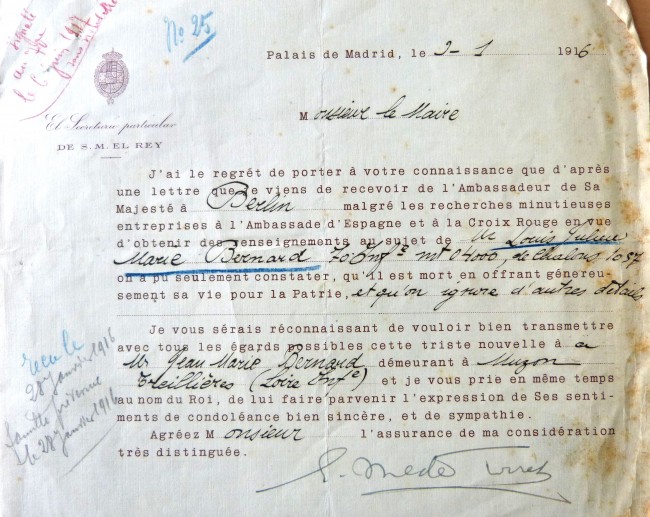 signalé
au
le 6 juin 1917
No 25
Palais de Madrid, le 2-1 1916
El Secretario particular
DE S. M. EL REY
Monsieur le Maire
J'ai le regrét de porter à votre connaissance que d'après
une lettre que je viens de recevoir de l'Ambassadeur de Sa
Majesté à Berlin malgré les recherches minutieuses
entreprises à l'Ambassade d'Espagne et à la Croix Rouge en vue
d'obtenir des renseignements au sujet de Mr Louis Julien
Marie Bernard 70 Infie mt 04000, de Chalons, 10 57
on a pu seulement constater, qu'il est mort en offrant génereu-
sement sa vie pour la Patrie, et qu'on ignore d'autres détails
Je vous sérais réconnaissant de vouloir bien transmettre
avec tous les égards possibles cette triste nouvelle à a
Mr Jean Marie Bernard démeurant à Muzon
Treillières (Loire Infre) et je vous prie en même temps
au nom du Roi, de lui faire parvenir l'expression de Ses senti-
ments de condoléance bien sincère, et de sympathie.
Agréez Monsieur l'assurance de ma considération
très distinguée.
reçu le
28 janvier 1916
famille prévenue
le 28 janvier 1916